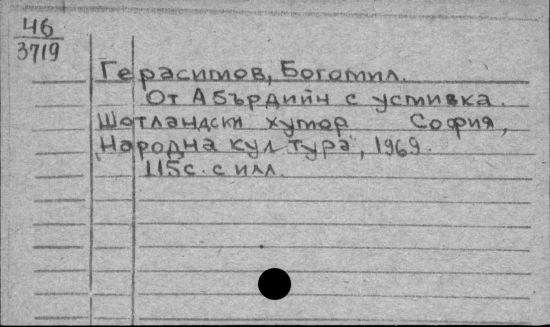 46
3719
Герасимов, Богомил.
От Абърдийн с усмивка.
Шотландски хумор София,
"Народна култура", 1969.
115с. с илл.